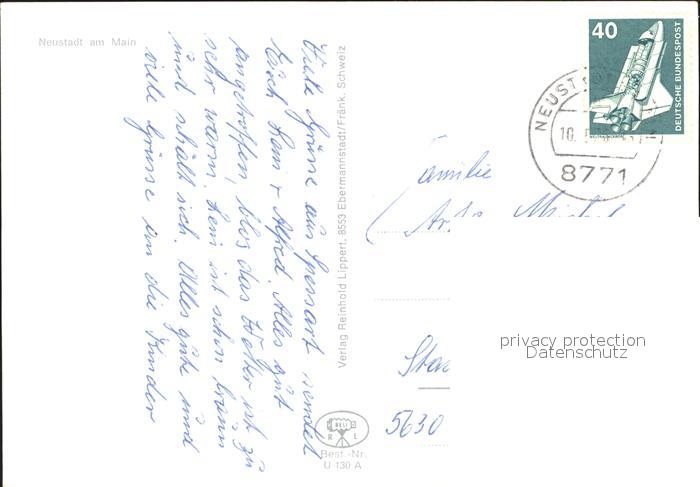 Neustadt am Main
Viele Grüsse aus Spessart sendet
Euch Leni + Alfred. Alles gut
angetroffen, blos das Wetter ist zu
sehr warm. Leni ist schon braun
und schält sich. Alles gute und
viele Grüsse an die Kinder
Verlag Reinhold Lippert, 8553 Ebermannstadt/Fränk. Schweiz
RELI
R L
Best.-Nr.
U 130 A
40
DEUTSCHE BUNDESPOST
NEUST
10.
8771
Familie
5630
privacy protection
Datenschutz